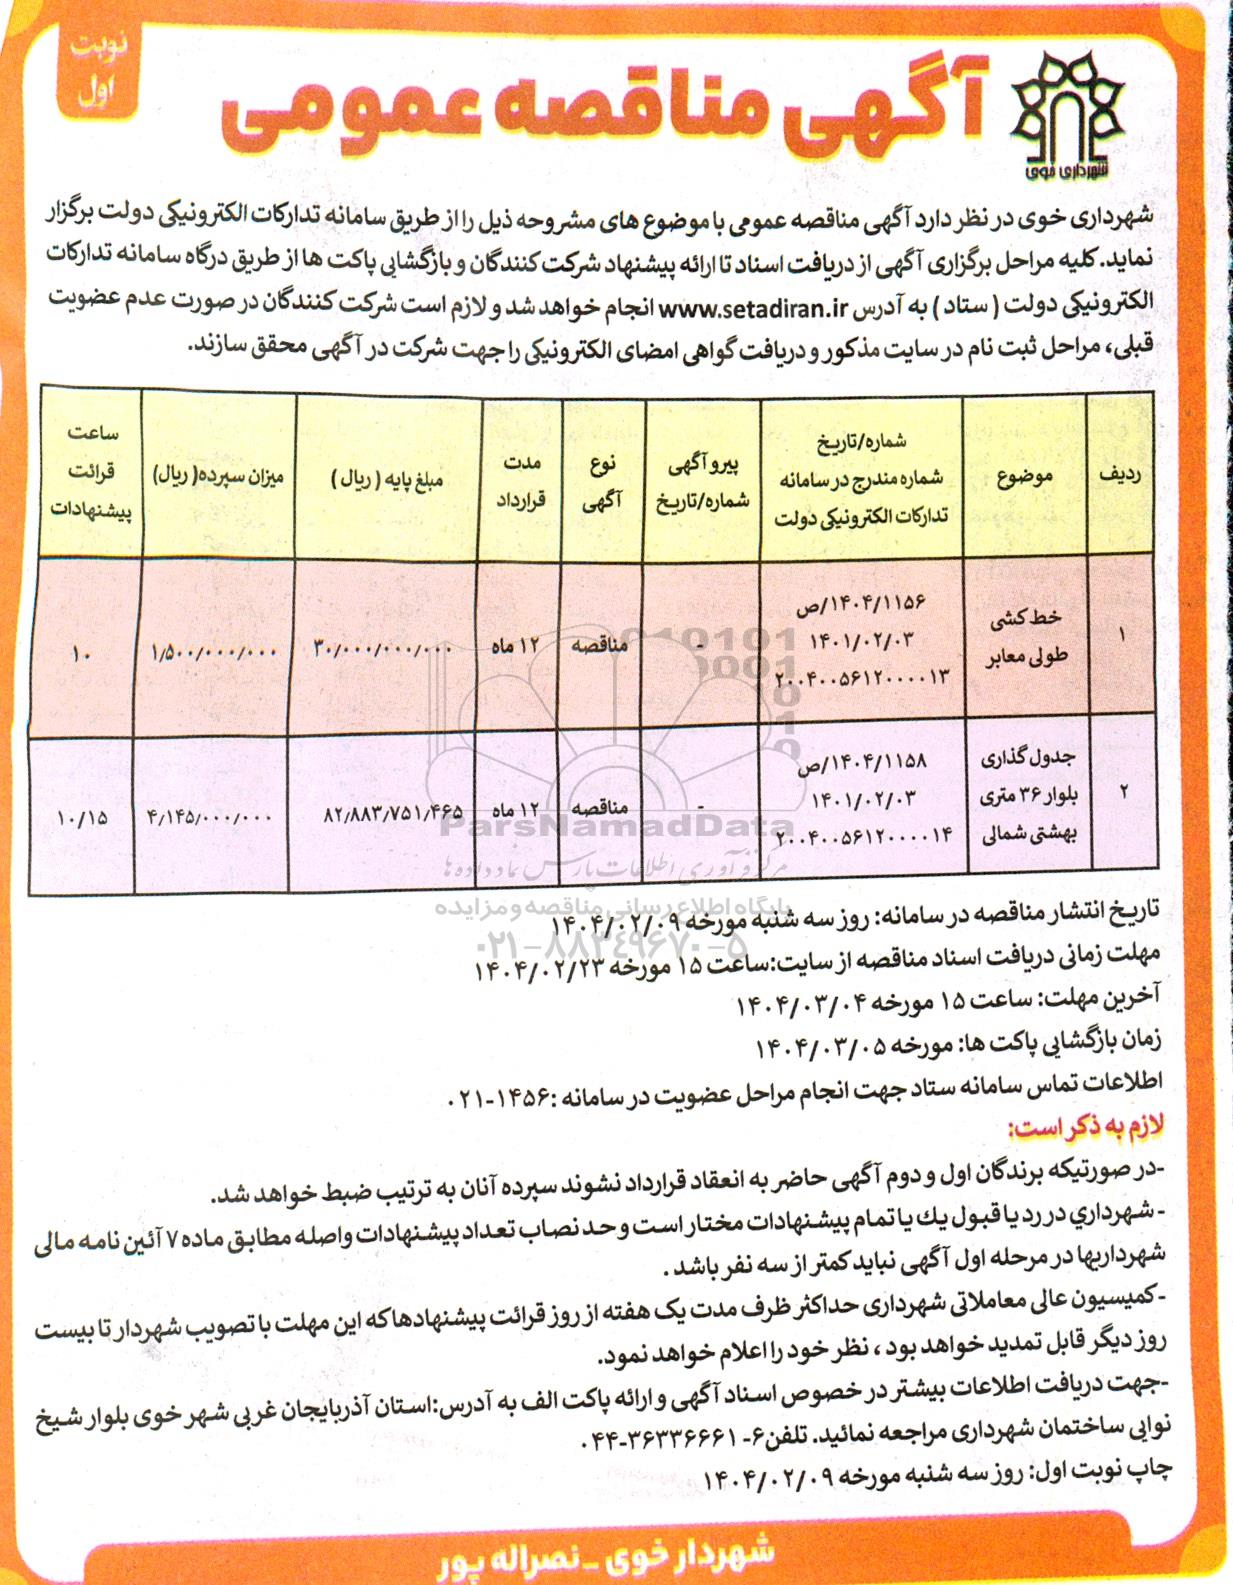 نوبت
اول
آگهی مناقصه عمومی
شهرداری خوی
شهرداری خوی در نظر دارد آگهی مناقصه عمومی با موضوع های مشروحه ذیل را از طریق سامانه تدارکات الکترونیکی دولت برگزار
نماید. کلیه مراحل برگزاری آگهی از دریافت اسناد تا ارائه پیشنهاد شرکت کنندگان و بازگشایی پاکت ها از طریق درگاه سامانه تدارکات
الکترونیکی دولت ( ستاد ) به آدرس www.setadiran.ir انجام خواهد شد و لازم است شرکت کنندگان در صورت عدم عضویت
قبلی، مراحل ثبت نام در سایت مذکور و دریافت گواهی امضای الکترونیکی را جهت شرکت در آگهی محقق سازند.
ردیف
موضوع
شماره/تاریخ
شماره مندرج در سامانه
تدارکات الکترونیکی دولت
پیرو آگهی
شماره/تاریخ
نوع
آگهی
مدت
قرارداد
مبلغ پایه ( ریال )
میزان سپرده( ریال)
ساعت
قرائت
پیشنهادات
۱
خط کشی
طولی معابر
۱۴۰۴/۱۱۵۶/ص
۱۴۰۱/۰۲/۰۳
۲۰۰۴۰۰۵۶۱۲۰۰۰۰۱۳
-
مناقصه
۱۲ ماه
۳۰/۰۰۰/۰۰۰/۰۰۰
۱/۵۰۰/۰۰۰/۰۰۰
۱۰
۲
جدول گذاری
بلوار ۳۶ متری
بهشتی شمالی
۱۴۰۴/۱۱۵۸/ص
۱۴۰۱/۰۲/۰۳
۲۰۰۴۰۰۵۶۱۲۰۰۰۰۱۴
-
مناقصه
۱۲ ماه
۸۲/۸۸۳/۷۵۱/۴۶۵
۴/۱۴۵/۰۰۰/۰۰۰
۱۰/۱۵
ParsNamadData
مرکز فرآوری اطلاعات پارس نماد داده ها
پایگاه اطلاع رسانی مناقصه و مزایده
۰۲۱-۸۸۳۴۹۶۷۰-۵
تاریخ انتشار مناقصه در سامانه: روز سه شنبه مورخه ۱۴۰۴/۰۲/۰۹
مهلت زمانی دریافت اسناد مناقصه از سایت:ساعت ۱۵ مورخه ۱۴۰۴/۰۲/۲۳
آخرین مهلت: ساعت ۱۵ مورخه ۱۴۰۴/۰۳/۰۴
زمان بازگشایی پاکت ها: مورخه ۱۴۰۴/۰۳/۰۵
اطلاعات تماس سامانه ستاد جهت انجام مراحل عضویت در سامانه :۱۴۵۶-۰۲۱
لازم به ذکر است:
-در صورتیکه برندگان اول و دوم آگهی حاضر به انعقاد قرارداد نشوند سپرده آنان به ترتیب ضبط خواهد شد.
- شهرداري در رد یا قبول يك یا تمام پیشنهادات مختار است و حد نصاب تعداد پیشنهادات واصله مطابق ماده ۷ آئین نامه مالی
شهرداریها در مرحله اول آگهی نباید کمتر از سه نفر باشد .
-کمیسیون عالی معاملاتی شهرداری حداکثر ظرف مدت یک هفته از روز قرائت پیشنهادها که این مهلت با تصویب شهردار تا بیست
روز دیگر قابل تمدید خواهد بود ، نظر خود را اعلام خواهد نمود.
-جهت دریافت اطلاعات بیشتر در خصوص اسناد آگهی و ارائه پاکت الف به آدرس:استان آذربایجان غربی شهر خوی بلوار شیخ
نوایی ساختمان شهرداری مراجعه نمائید. تلفن۶- ۳۶۳۳۶۶۶۱-۰۴۴
چاپ نوبت اول: روز سه شنبه مورخه ۱۴۰۴/۰۲/۰۹
شهردار خوی _ نصراله پور